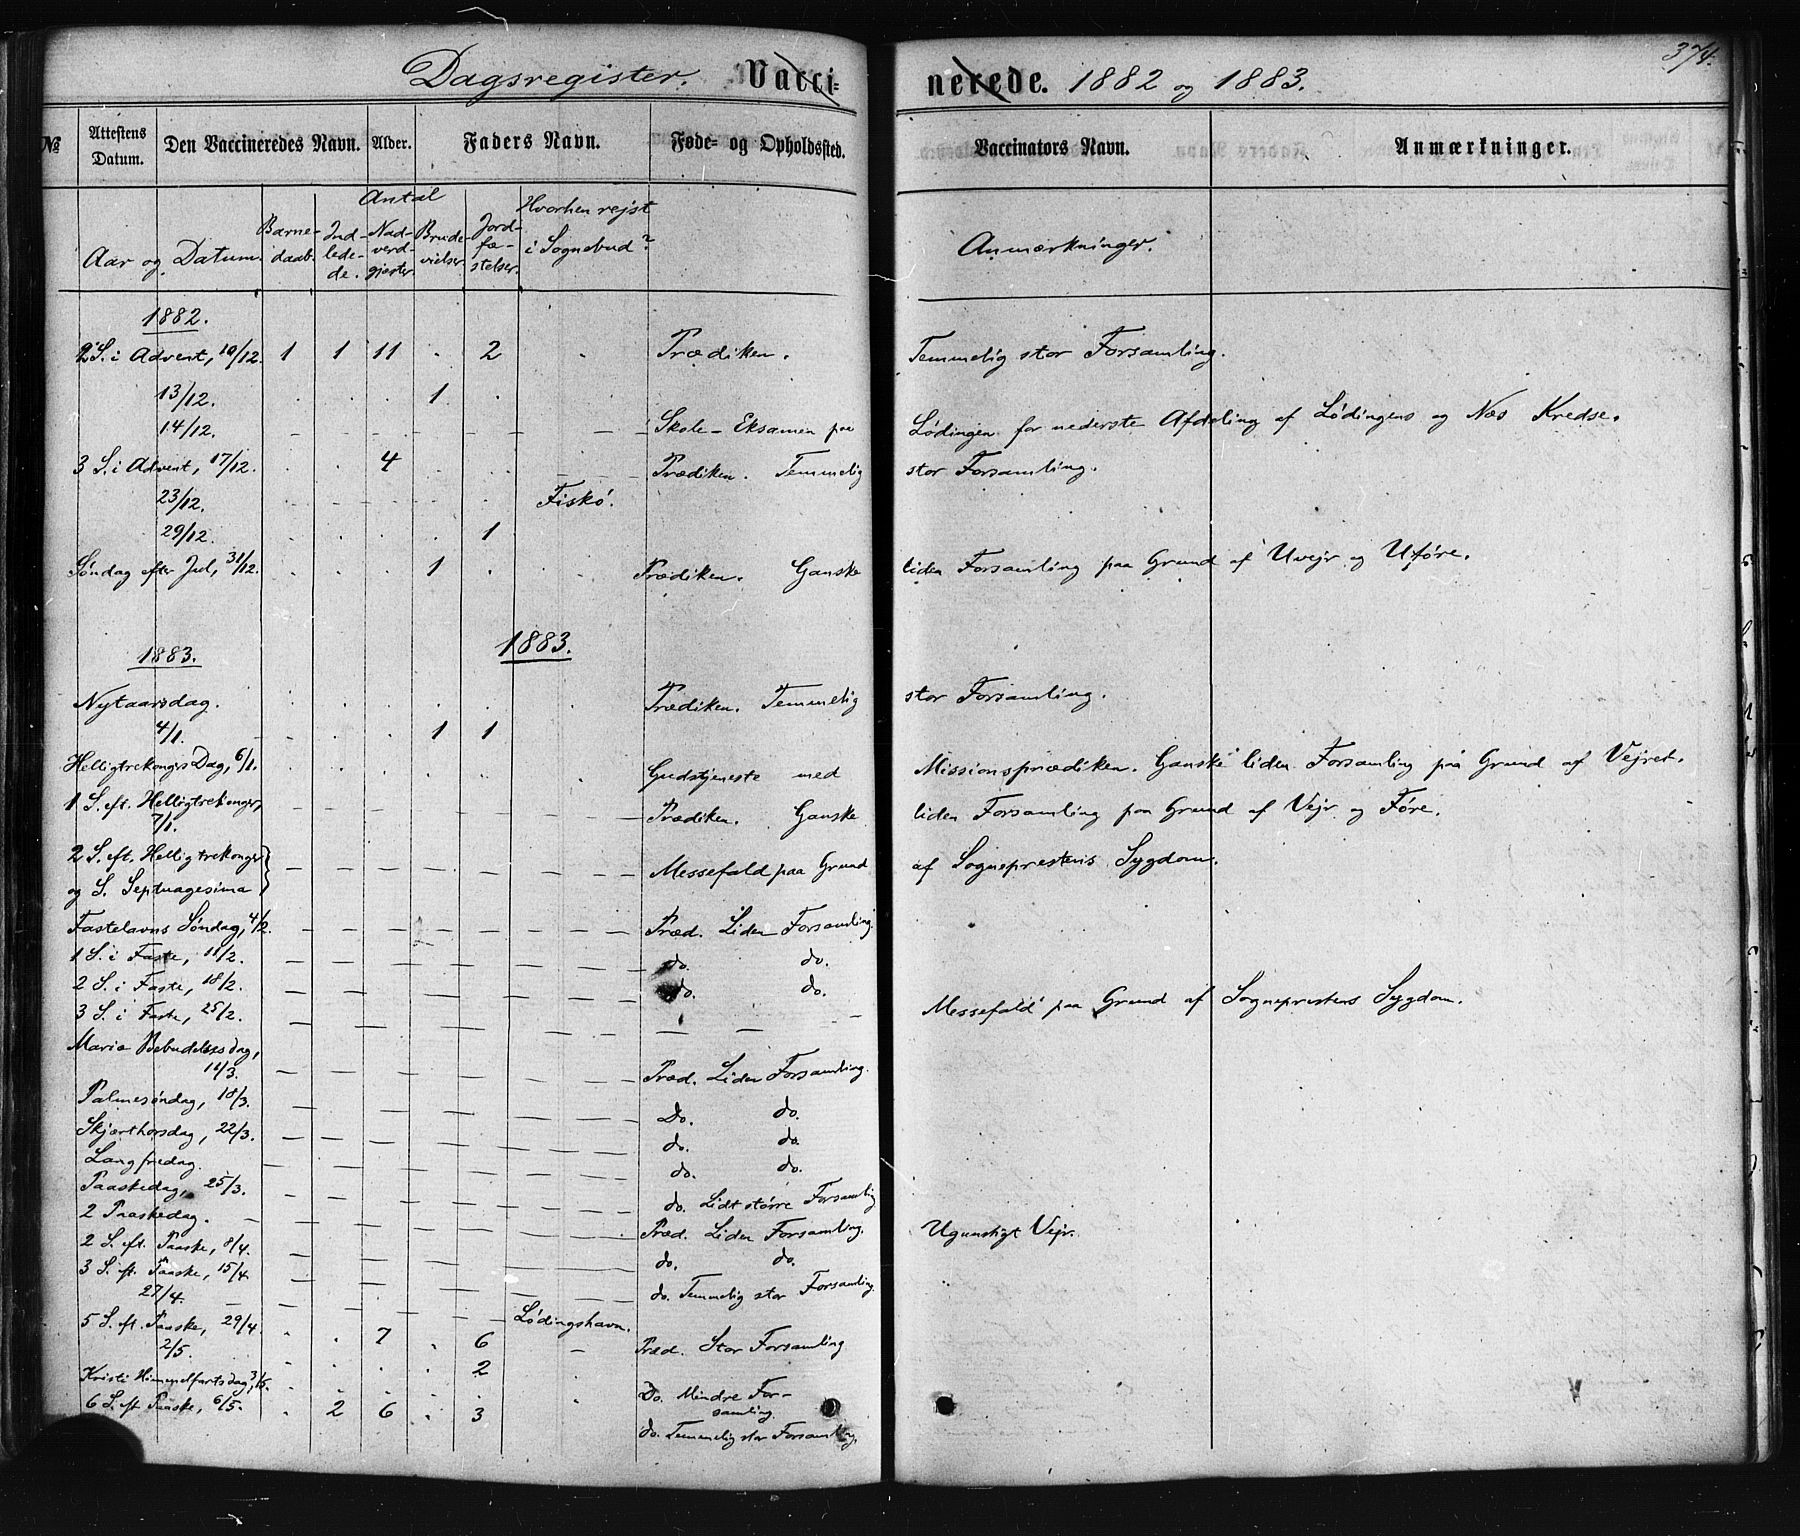 374.
Dagsregister. Vaccinerede. 1882 og 1883.
No Attestens Datum. Den Vaccineredes Navn. Alder. Faders Navn. Føde- og Opholdssted. Vaccinators Navn. Anmærkninger.
Antal
Aar og Datum. Barne-daab. Ind-lede-de. Nad-verd-gjæster. Brude-vielser. Jord-fæ-stelser. Hvorhen rejst i Sognebud? Anmærkninger.
1882.
2 S. i Advent, 10/12. 1 1 11 . 2 . Prædiken. Temmelig stor Forsamling.
13/12. . . . 1 . .
14/12. — — — — — — Skole-Eksamen paa Lødingen for nederste Afdeling af Lødingens og Næs Kredse.
3 S. i Advent, 17/12. . . 4 . . Prædiken. Temmelig stor Forsamling.
23/12. . . . . . Fiskø.
29/12. . . . . 1
Søndag efter Jul, 31/12. . . . 1 . . Prædiken. Ganske liden Forsamling paa Grund af Uvejr og Uføre.
1883. 1883.
Nytaarsdag. . . . . . . Prædiken. Temmelig stor Forsamling.
4/1. . . . 1 1
Helligtrekongers Dag, 6/1. . . . . . . Gudstjeneste med Missionsprædiken. Ganske liden Forsamling på Grund af Vejret.
1 S. eft. Helligtrekonger, 7/1. — — — — — — Prædiken. Ganske liden Forsamling paa Grund af Vejr og Føre.
2 S. eft. Helligtrekonger
og S. Septuagesima — — — — — — Messefald paa Grund af Sogneprestens Sygdom.
Fastelavns Søndag, 4/2. — — — — — — Præd. Liden Forsamling.
1 S. i Faste, 11/2. — — — — — — do. do.
2 S. i Faste, 18/2. — — — — — — do. do.
3 S. i Faste, 25/2. — — — — — — — — — Messefald paa Grund af Sogneprestens Sygdom.
Mariæ Bebudelsesdag,
11/3. — — — — — — Præd. Liden Forsamling.
Palmesøndag, 18/3. — — — — — — Do. do.
Skjærthorsdag, 22/3. — — — — — — do. do.
Langfredag. — — — — — — do. do.
Paaskedag, 25/3. — — — — — — do. Lidt større Forsamling
2 Paaskedag. — — — — — — Præd. Liden Forsamling. Ugunstigt Vejr.
2 S. eft. Paaske, 8/4. — — — — — — do. do.
3 S. eft. Paaske, 15/4. — — — — — — do. Temmelig stor Forsamling.
27/4. — — — — — Lødingshavn.
5 S. eft. Paaske, 29/4. . . 7 . 6 — Præd. Stor Forsamling
2/5. . . . . 2
Kristi Himmelfartsdag, 3/5. . . . . . . Do. Mindre For-
samling.
6 S. eft. Paaske, 6/5. . 2 6 . 3 do. Temmelig stor Forsamling.